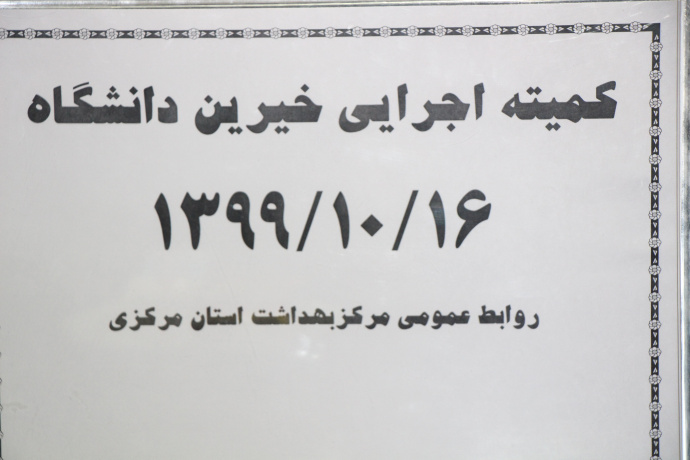 کمیته اجرایی خیرین دانشگاه
۱۳۹۹/۱۰/۱۶
روابط عمومی مرکزبهداشت استان مرکزی